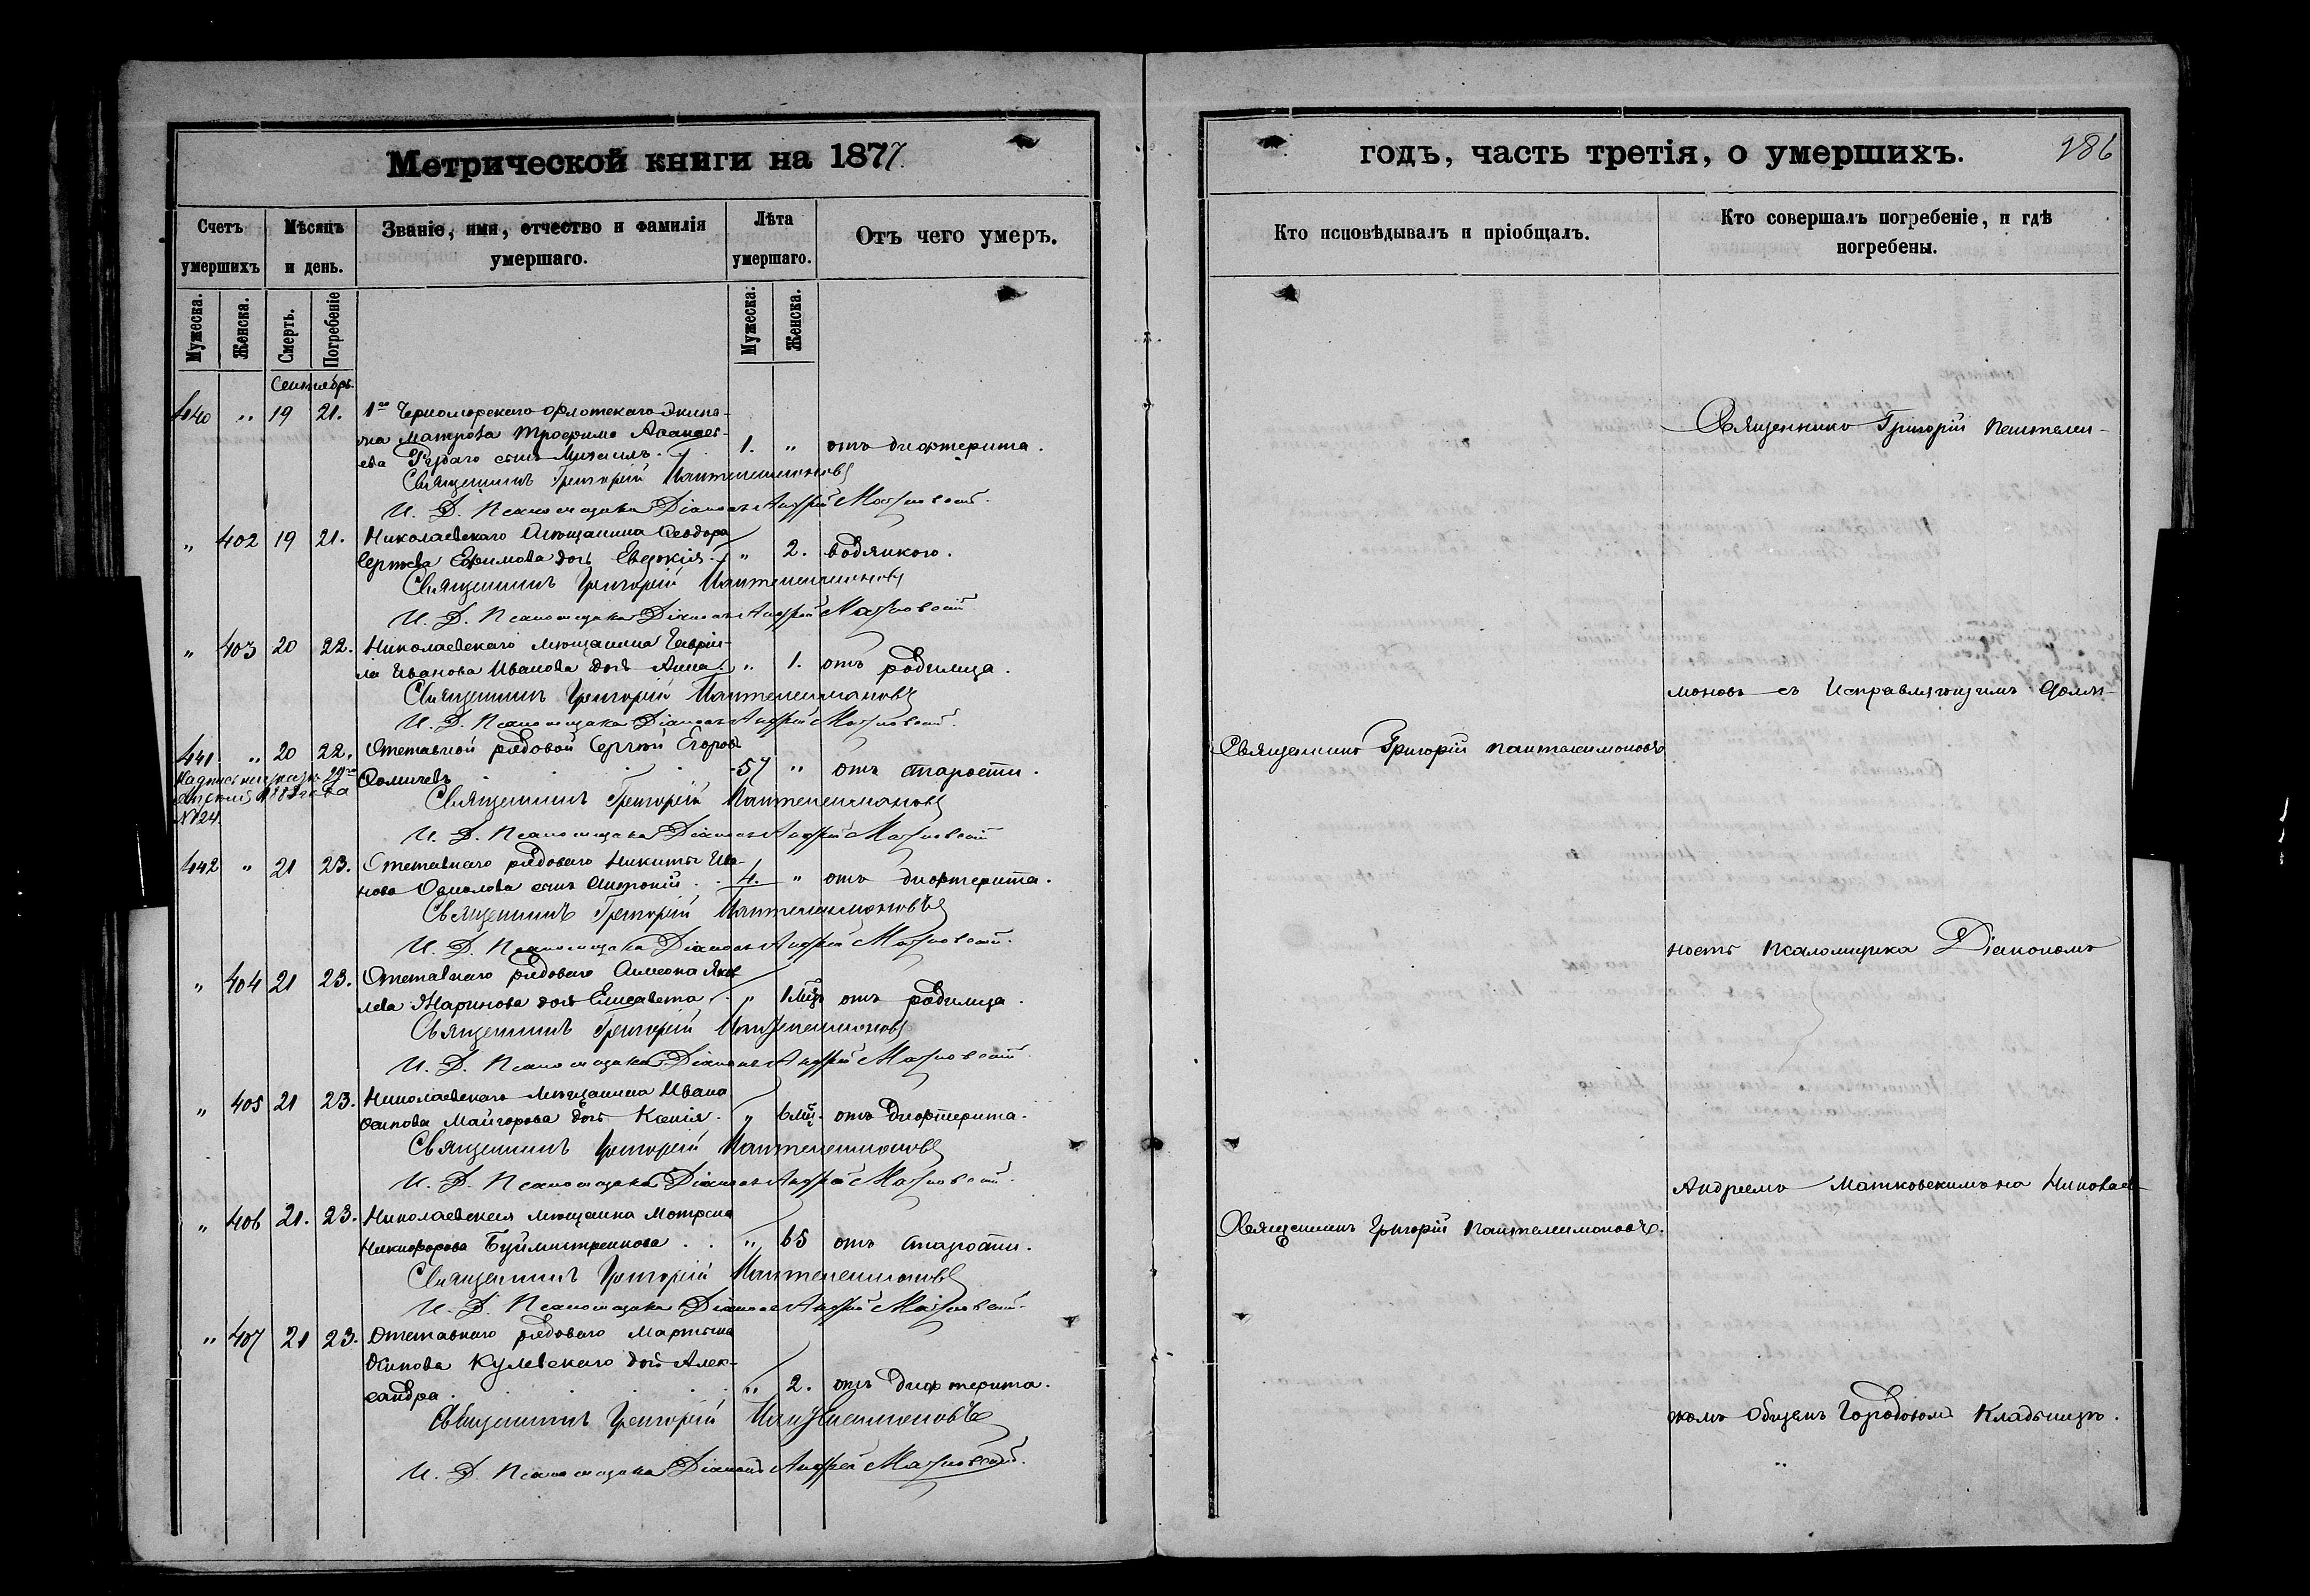 Метрической книги на 1877.
Счетъ умершихъ
Мѣсяцъ и день.
Званіе, имя, отчество и фамилія умершаго.
Лѣта умершаго.
Отъ чего умеръ.
Мужеска.
Женска.
Смерть.
Погребеніе
Мужеска.
Женска.
Сентябрь.
440 " 19 21. 1го Черноморскаго Флотскаго Экипа-
жа Матроса Трофима Аѳанась-
ева сынъ Михаилъ. 1. " отъ дифтерита.
Священникъ Григорій Пантелеимоновъ
И. Д. Псаломщика Діаконъ Андрей Матковскій.
" 402 19 21. Николаевскаго Мѣщанина Ѳеодора
Сергѣева Ефимова дочь Евдокія. " 2. водянкою.
Священникъ Григорій Пантелеимоновъ
И. Д. Псаломщика Діаконъ Андрей Матковскій
" 403 20 22. Николаевскаго мѣщанина Гаврі-
ила Иванова Иванова дочь Анна. " 1. отъ родимца.
Священникъ Григорій Пантелеимоновъ
И. Д. Псаломщика Діаконъ Андрей Матковскій.
441 " 20 22. Отставной рядовой Сергѣй Егоровъ
Ѳомичевъ 57 " отъ старости.
№ 24.
Священникъ Григорій Пантелеимоновъ
И. Д. Псаломщика Діаконъ Андрей Матковскій
442 " 21 23. Отставнаго рядоваго Никиты Ива-
нова сынъ Антоній. 4. " отъ дифтерита.
Священникъ Григорій Пантелеимоновъ
И. Д. Псаломщика Діаконъ Андрей Матковскій.
" 404 21 23. Отставнаго рядоваго Симеона Яков-
лева Жаринова дочь Елисавета. " 1 мѣц. отъ родимца.
Священникъ Григорій Пантелеимоновъ
И. Д. Псаломщика Діаконъ Андрей Матковскій
" 405 21 23. Николаевскаго Мѣщанина Ивана
Осипова Майгорова дочь Ксенія. " 6 мѣц. отъ Дифтерита.
Священникъ Григорій Пантелеимоновъ
И. Д. Псаломщика Діаконъ Андрей Матковскій.
" 406 21. 23. Николаевская мѣщанка Мотрона
Никифорова Буймистренкова. " 65 отъ старости.
Священникъ Григорій Пантелеимоновъ
И. Д. Псаломщика Діаконъ Андрей Матковскій.
" 407 21 23. Отставнаго рядоваго Мартына
Осипова Кулевскаго дочь Алек-
сандра. " 2. отъ дифтерита.
Священникъ Григорій Пантелеимоновъ
И. Д. Псаломщика Діаконъ Андрей Матковскій.
годъ, часть третія, о умершихъ.
286
Кто исповѣдывалъ и пріобщалъ.
Кто совершалъ погребеніе, и гдѣ погребены.
Священникъ Григорій Пантелеи-
моновъ съ Исправляющимъ долж-
Священникъ Григорій Пантелеимоновъ
ность псаломщика Діакономъ
Андреемъ Матковскимъ на Николаев-
Священникъ Григорій Пантелеимоновъ.
скомъ Общемъ Городскомъ Кладбищѣ.